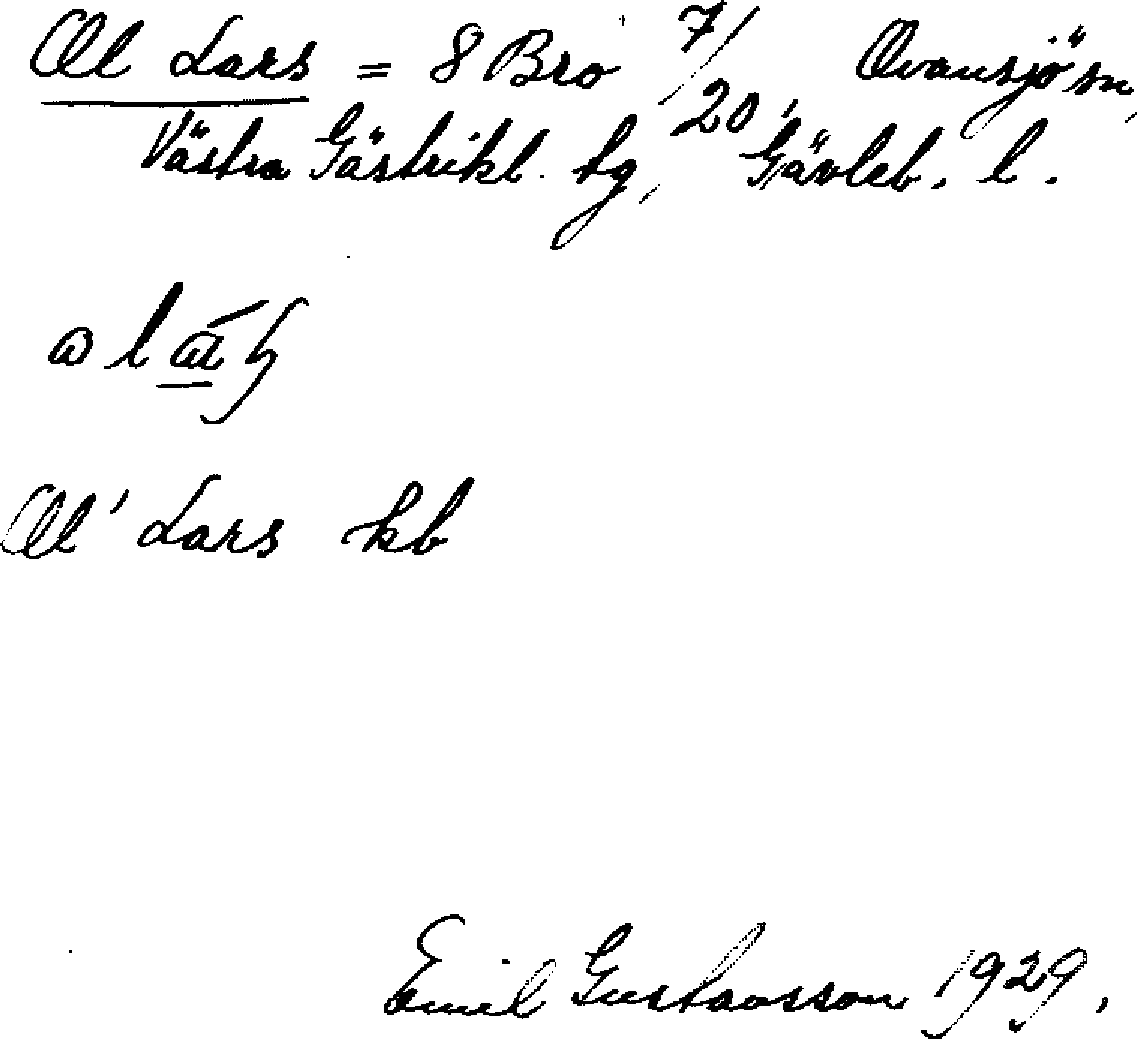 Ol Lars = 8 Bro 7/20, Ovansjö sn,
Västra Gästrikl. tg, Gävleb. l.
Ol' Lars kb
Emil Gustavsson 1929.